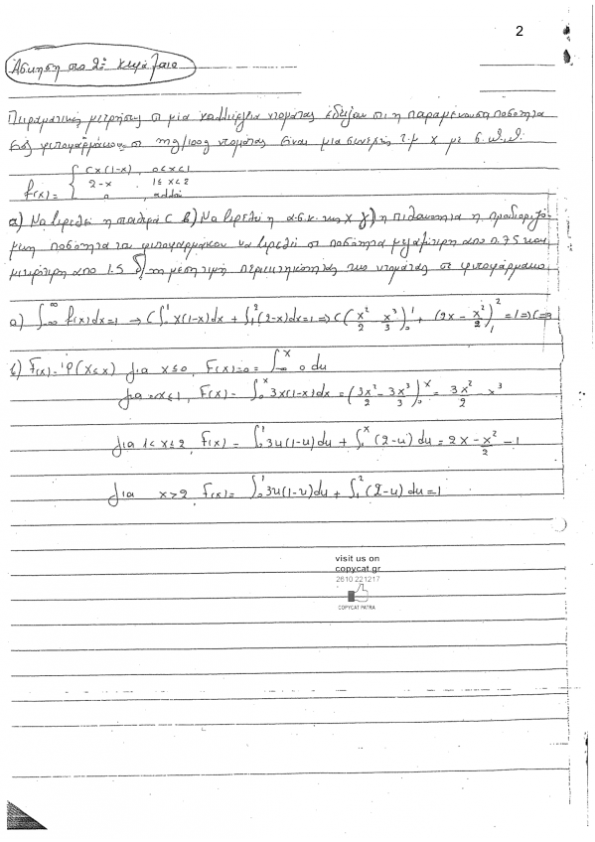 2
Άσκηση στο 2º κεφάλαιο
Πειραματικές μετρήσεις σε μία καλλιέργεια ντομάτας έδειξαν ότι η παραμένουσα ποσότητα
ενός φυτοφαρμάκου σε mg/100g ντομάτας είναι μια συνεχής τ.μ X με σ.π.π.
f(x) = { cx(1-x), 0≤x≤1
2-x 1≤x<2
0, αλλού
α) Να βρεθεί η σταθερά c β) Να βρεθεί η α.σ.κ. της X γ) η πιθανότητα η προσδιοριζό-
μενη ποσότητα του φυτοφαρμάκου να βρεθεί σε ποσότητα μεγαλύτερη από 0.75 και
μικρότερη από 1.5 δ) τη μέση τιμή περιεκτικότητας της ντομάτας σε φυτοφάρμακο
α) ∫₋∞^∞ f(x)dx=1 → c∫₀¹ x(1-x)dx + ∫₁²(2-x)dx=1 => c(x²/2 - x³/3)₀¹ + (2x - x²/2)₁² = 1 => c=3
β) F(x) = P(X≤x) για x≤0, F(x)=0 = ∫₋∞^x 0 du
για 0<x≤1, F(x) = ∫₀^x 3x(1-x)dx = (3x²/2 - 3x³/3)₀^x = 3x²/2 - x³
για 1<x≤2, F(x) = ∫₀¹ 3u(1-u)du + ∫₁^x (2-u)du = 2x - x²/2 - 1
για x>2 F(x) = ∫₀¹ 3u(1-u)du + ∫₁² (2-u)du = 1
visit us on
copycat.gr
2610 221217
COPYCAT PATRA